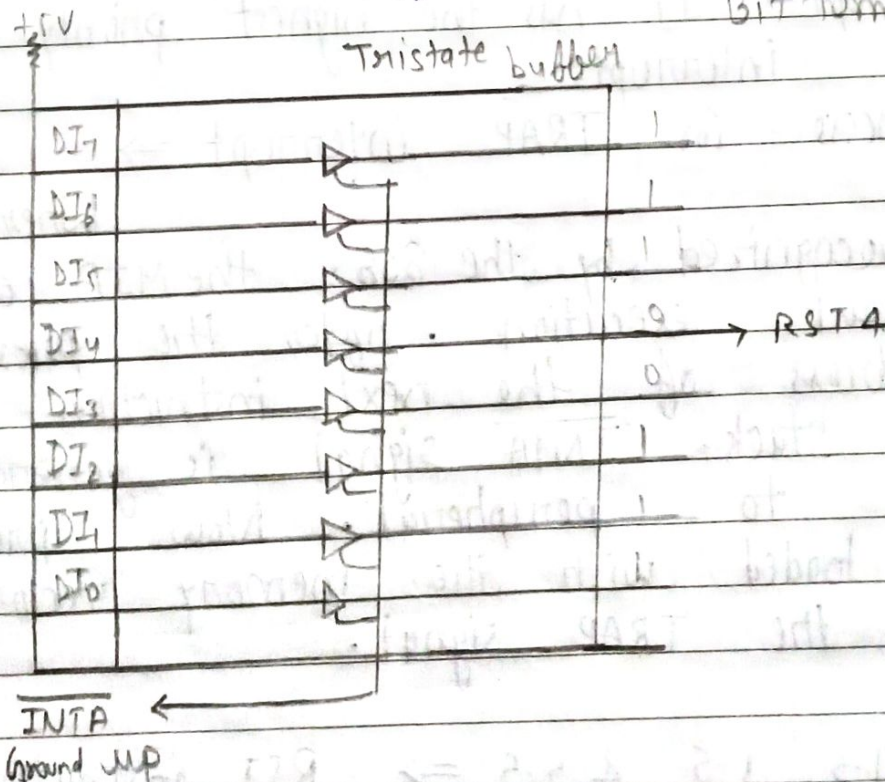 +5V
Tristate buffer
DI7 1
DI6 1
DI5 1
DI4 0 → RST 4
DI3 0
DI2 1
DI1 1
DI0 1
INTA
Ground MP